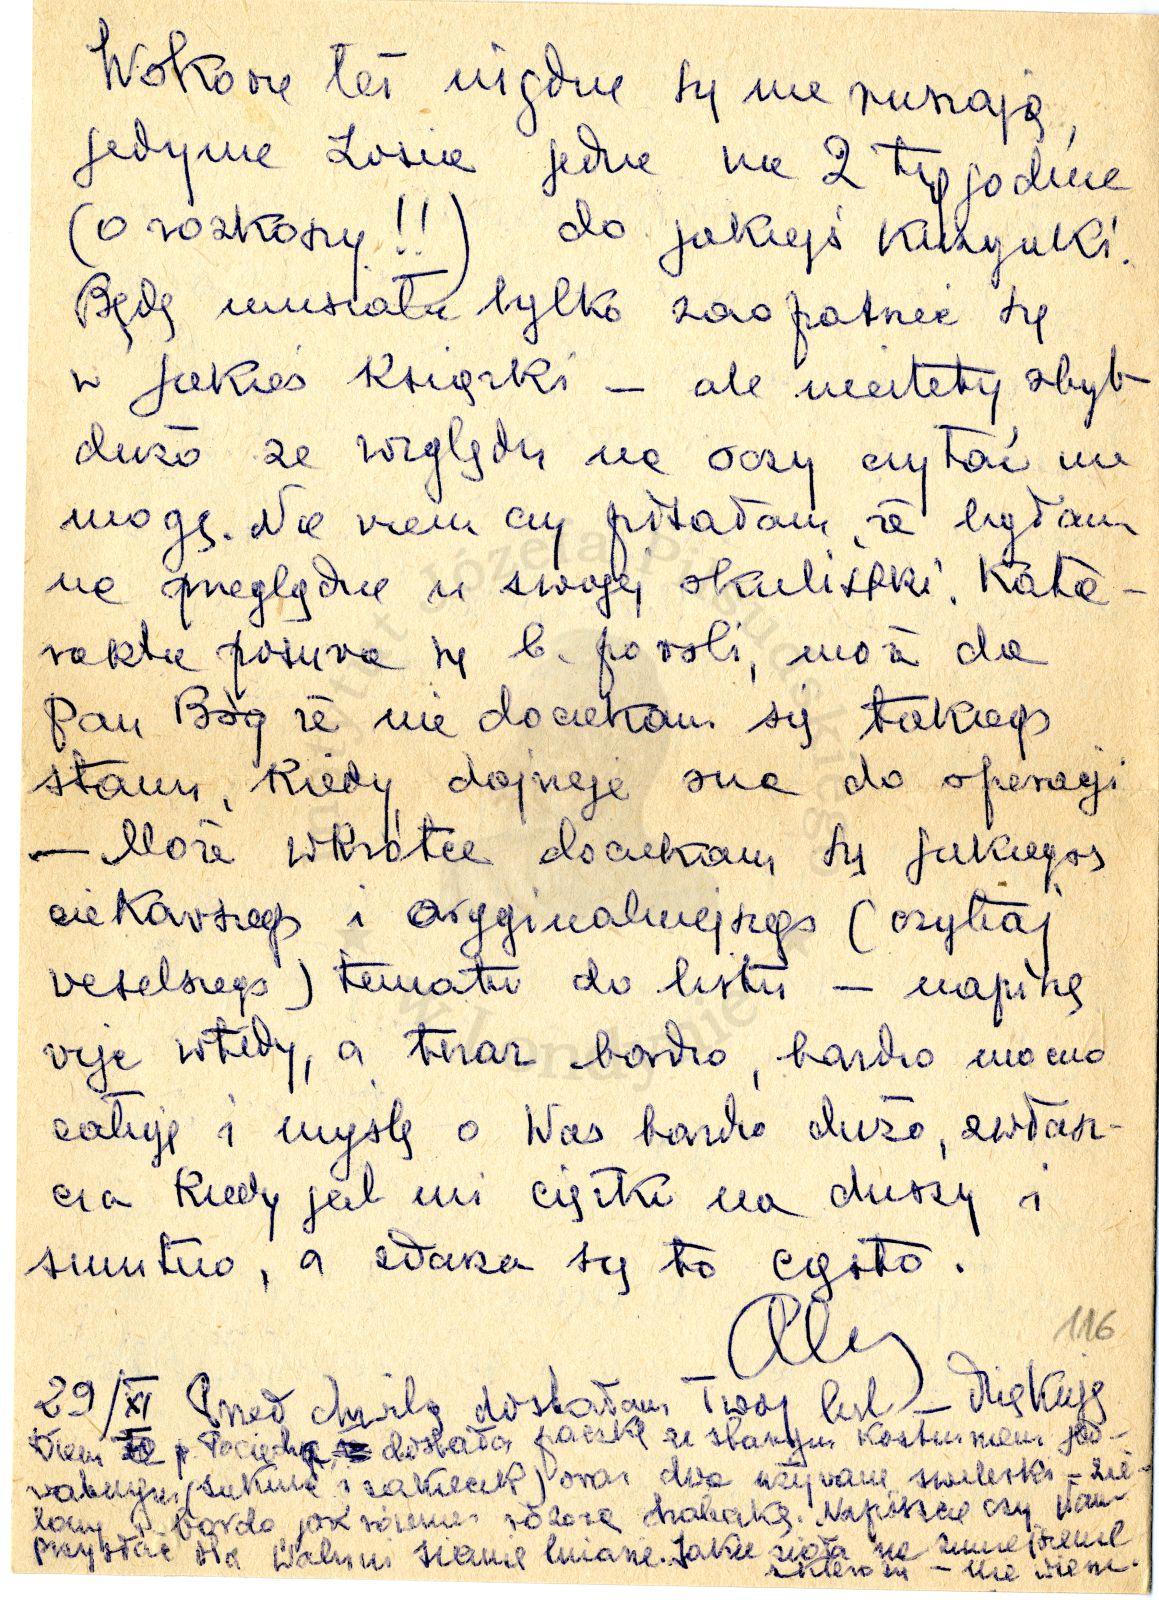 Wokowie też nigdzie się nie ruszają,
jedynie Zosia jedzie na 2 tygodnie
(o rozkoszy!!) do jakiejś kuzynki.
Będę musiała tylko zaopatrzeć się
w jakieś książki – ale niestety zbyt
dużo ze względu na oczy czytać nie
mogę. Nie wiem czy pisałam, że byłam
na przeglądzie u swojej okulistki. Kata-
rakta posuwa się b. powoli, może da
Pan Bóg że nie doczekam się takiego
stanu, kiedy dojrzeje ona do operacji
– Może wkrótce doczekam się jakiegoś
ciekawszego i oryginalniejszego (czytaj
weselszego) tematu do listu – napiszę
więc wtedy, a teraz bardzo, bardzo mocno
całuję i myślę o Was bardzo dużo, zwłasz-
cza kiedy jest mi ciężko na duszy i
smutno, a zdarza się to często.
116
29/XI Przed chwilą dostałam Twój list – dziękuję
Wiem p. Pociecha dostała paczkę ze starym kostiumem jed-
wabnym (suknia i żakiecik) oraz dwa używane sweterki – zie-
lony i bordo jak również różową drabaskę. Napiszcie czy Wam
przysłać dla siemię lniane. Jakie zioła na zmniejszenie
sklerozy – nie wiem.